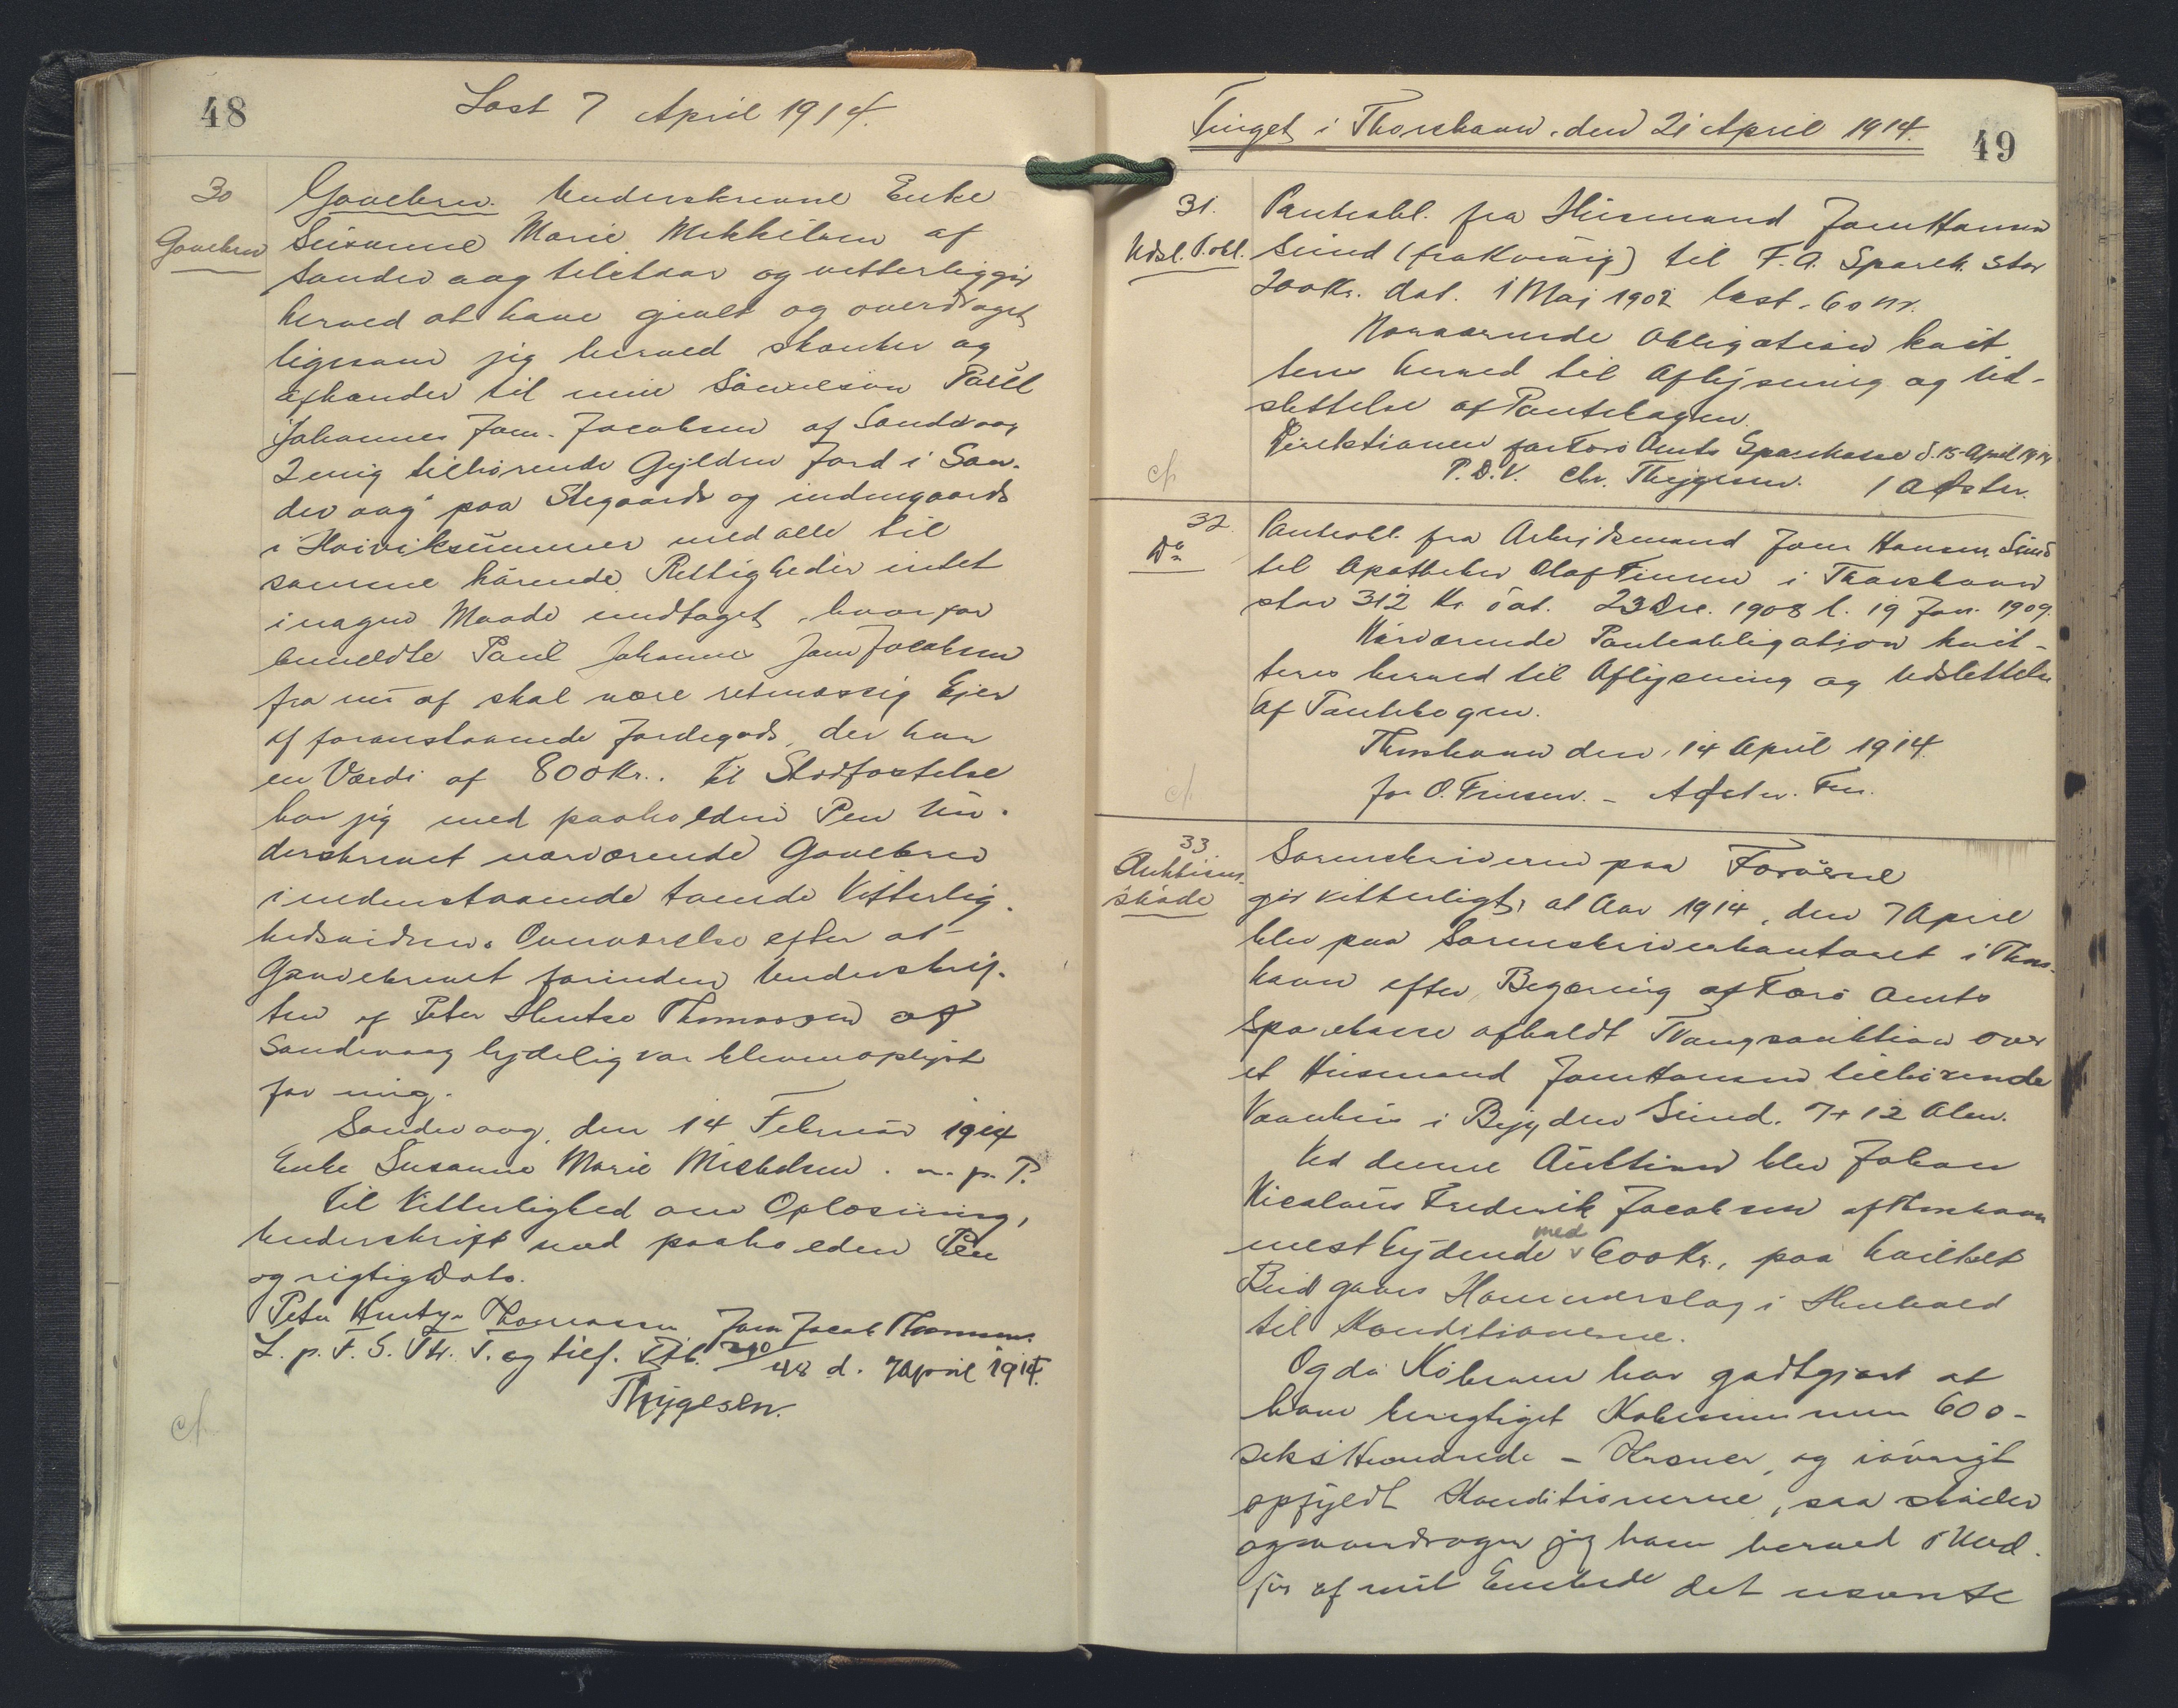 48
Læst 7 April 1914.
30
Gavebrev
Gavebrev. Underskrevne Enke
Susanne Marie Mikkelsen af
Sandevaag tilstaar og vitterliggør
herved at have givet og overdraget
ligesom jeg herved skænker og
afhænder til min Sønnesøn Poul
Johannes Joen. Jacobsen af Sandevaag
2 mig tilhørende Gylden Jord i San-
devaag paa Stegaards og indengaards
i Hoiviksunner med alle til
samme hørende Rettigheder intet
i nogen Maade undtaget, hvorfor
bemeldte Poul Johannes Joen Jacobsen
fra nu af skal være retmæssig Ejer
af foranstaaende Jordegods, der har
en Værdi af 800 Kr.. Til Stadfæstelse
har jeg med paaholden Pen Un-
derskrevet nærværende Gavebrev
i undenstaaende tvende Vitterlig-
hedsvidners Overværelse efter at
Gavebrevet forinden Underskrif-
ten af Peter Hentze Thomassen af
Sandevaag tydelig var bleven oplyst
for mig.
Sandevaag, den 14 Februar 1914
Enke Susanne Marie Mickelsen. m. p. P.
Til Vitterlighed om Oplæsning,
Underskrift med paaholden Pen
og rigtig Dato.
Peter Hentze Thomassen Joen Jacob Thomsen.
L. p. F. S. Th. T. og tilf. Ptb. 48 d. 7 April 1914.
Thygesen.
49
Tinget i Thorshavn den 21 April 1914.
31.
Udsl. P.obl.
Panteobl. fra Husmand Joen Hansen
Sund (fra Kvivig) til F. A. Spark. stor
200 Kr. dat. 1 Maj 1902 læst. 60 Nr.
Nærværende Obligation kvit
teres herved til Aflysning og Ud-
slettelse af Pantebogen.
Direktionen for Færø Amts Sparekasse d. 15 April 1914
P. D. V. Chr. Thygesen.
32.
Do
Panteobl. fra Arbejdsmand Joen Hansen Sund
til Apotheker Olaf Finsen i Thorshavn
stor 312 Kr dat. 23 Dec. 1908 l. 19 Jan. 1909.
Nærværende Panteobligation kvit-
teres herved til Aflysning og Udslettelse
af Pantebogen.
Thorshavn den 14 April 1914.
for O. Finsen. -
33
Auktions-
skøde
Sorenskriveren paa Færøerne
gør vitterligt, at Aar 1914, den 7 April
blev paa Sorenskriverkontoret i Thors-
havn efter Begæring af Færø Amts
Sparekasse afholdt Tvangsauktion over
et Husmand Joen Hansen tilhørende
Vaanhus i Bygden Sund. 7 + 12 Alen.
Ved denne Auktion blev Johan
Nicolaus Frederik Jacobsen af Thorshavn
mestbydende med 600 Kr., paa hvilket
Bud gaves Hammerslag i Henhold
til Konditionerne.
Og da Køberen har godtgjort at
have berigtiget Købesummen 600 -
seks Hundrede - Kroner, og iøvrigt
opfyldt Konditionerne, saa skøder
og overdrager jeg ham herved i Med-
før af mit Embede det nævnte